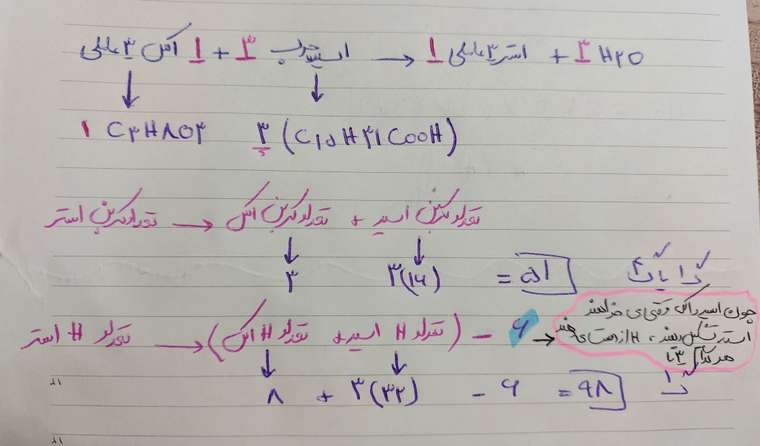 1 الکل ۳ عاملی + ۳ اسید چرب → 1 استر ۳ عاملی + ۳ H۲O
۱ C۳H۸O۳ ۳ (C۱۵H۳۱COOH)
تعداد کربن استر → تعداد کربن الکل + تعداد کربن اسید
۳ ۳(۱۶) = ۵۱
تعداد H استر → (تعداد H الکل + تعداد H اسید) − ۶ →
چون اسید و الکل وقتی می خواهند
استر تشکیل بدهند، H از دست می دهند
هر کدام ۳ تا
۸ + ۳(۳۲) − ۶ = ۹۸